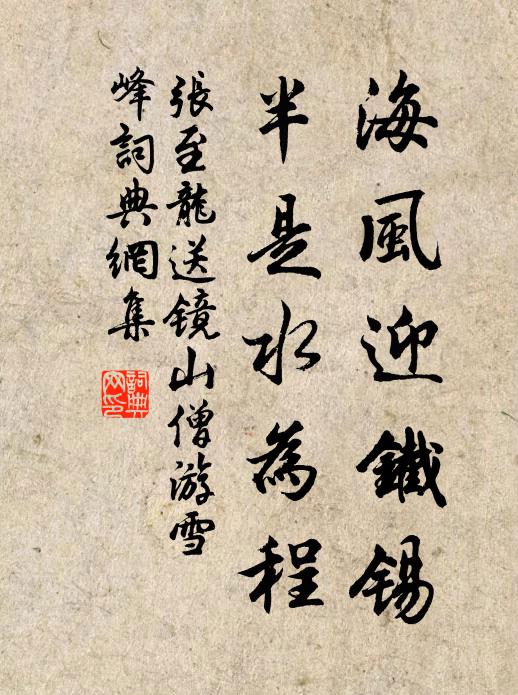 海風迎鐵錫
半是水為程
張至龍送镜山僧游雪
峰詞典網集
詞典網印